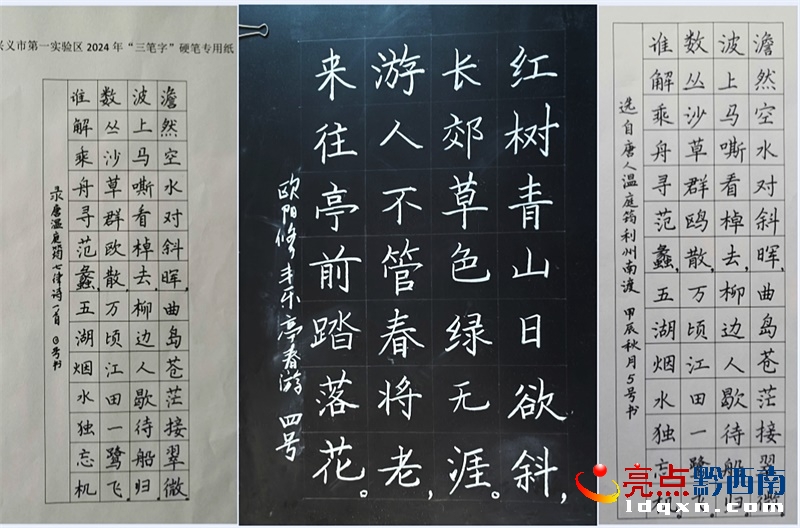 兴义市第一实验区2024年“三笔字”硬笔专用纸
澹然空水对斜晖,曲岛苍茫接翠微。
波上马嘶看棹去,柳边人歇待船归。
数丛沙草群欧散,万顷江田一鹭飞。
谁解乘舟寻范蠡,五湖烟水独忘机
录唐温庭筠七律诗一首 号书
红树青山日欲斜,
长郊草色绿无涯。
游人不管春将老,
来往亭前踏落花。
欧阳修丰乐亭春游 四号
澹然空水对斜晖,曲岛苍茫接翠微
波上马嘶看棹去,柳边人歇待船归
数丛沙草群鸥散,万顷江田一鹭
谁解乘舟寻范蠡,五湖烟水独忘机
选自唐人温庭筠利州南渡 甲辰秋月5号书
亮点黔西南
ldqxn.com